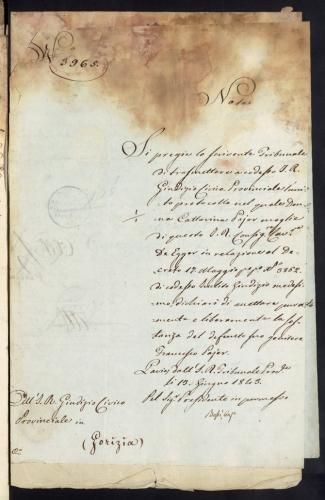 N.° 3965.
Nota
Si pregia lo scrivente Tribunale
di trasmettere a codesto I. R.
Giudizio Civico Provinciale l'unito
protocollo nel quale Don-
na Catterina Pajer moglie
di questo I. R. Consig.e Cav.e
De Egger in relazione al de-
creto 17 Maggio p.° p.° N.° 3862
di codesto Giudizio medesi-
mo, dichiarò di accettare pura-
mente e liberamente la so-
stanza del defunto suo genitore
Francesco Pajer.
Dall' I. R. Tribunale Prov.e
li 13. Giugno 1843.
Pel Sig.r Presidente in permesso
Dall' I. R. Giudizio Civico
Provinciale in
(Gorizia)